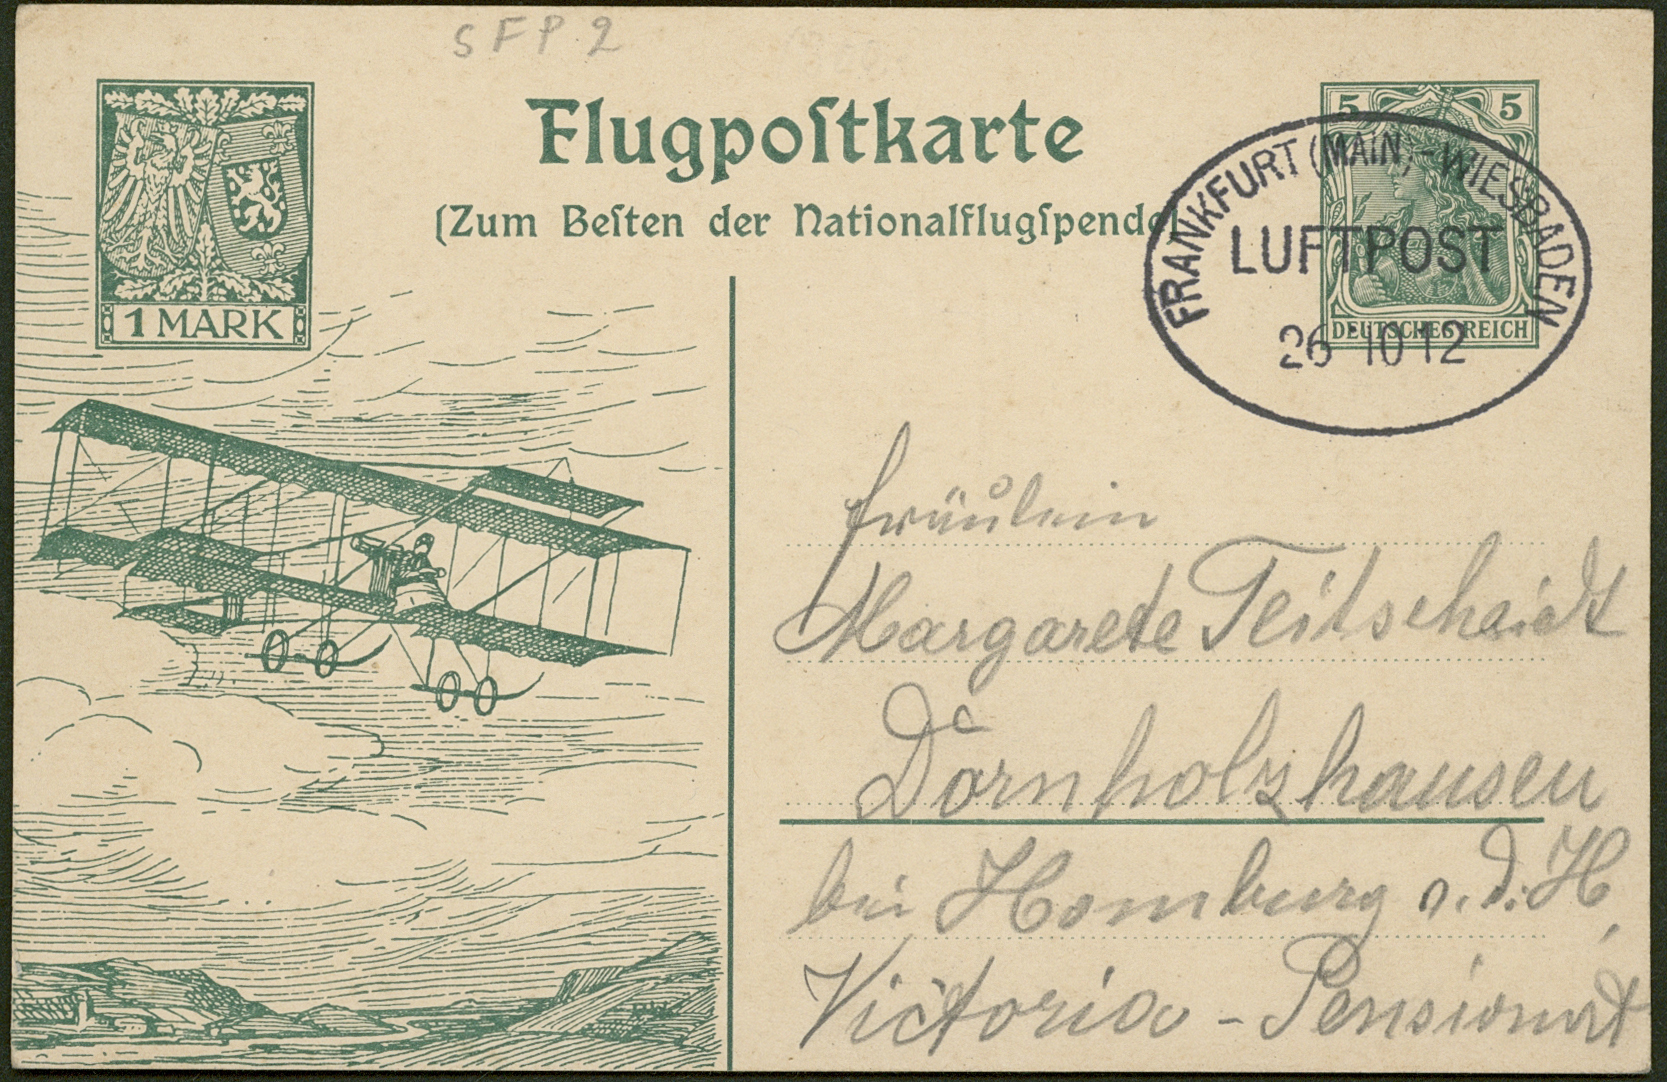 SFP 2
Flugpoſtkarte
(Zum Beſten der Nationalflugſpende)
1 MARK
5 5
DEUTSCHES REICH
FRANKFURT (MAIN) - WIESBADEN
LUFTPOST
26 10 12
Fräulein
Margarete Teitscheidt
Dornholzhausen
bei Homburg v.d.H.
Victoria - Pensionat